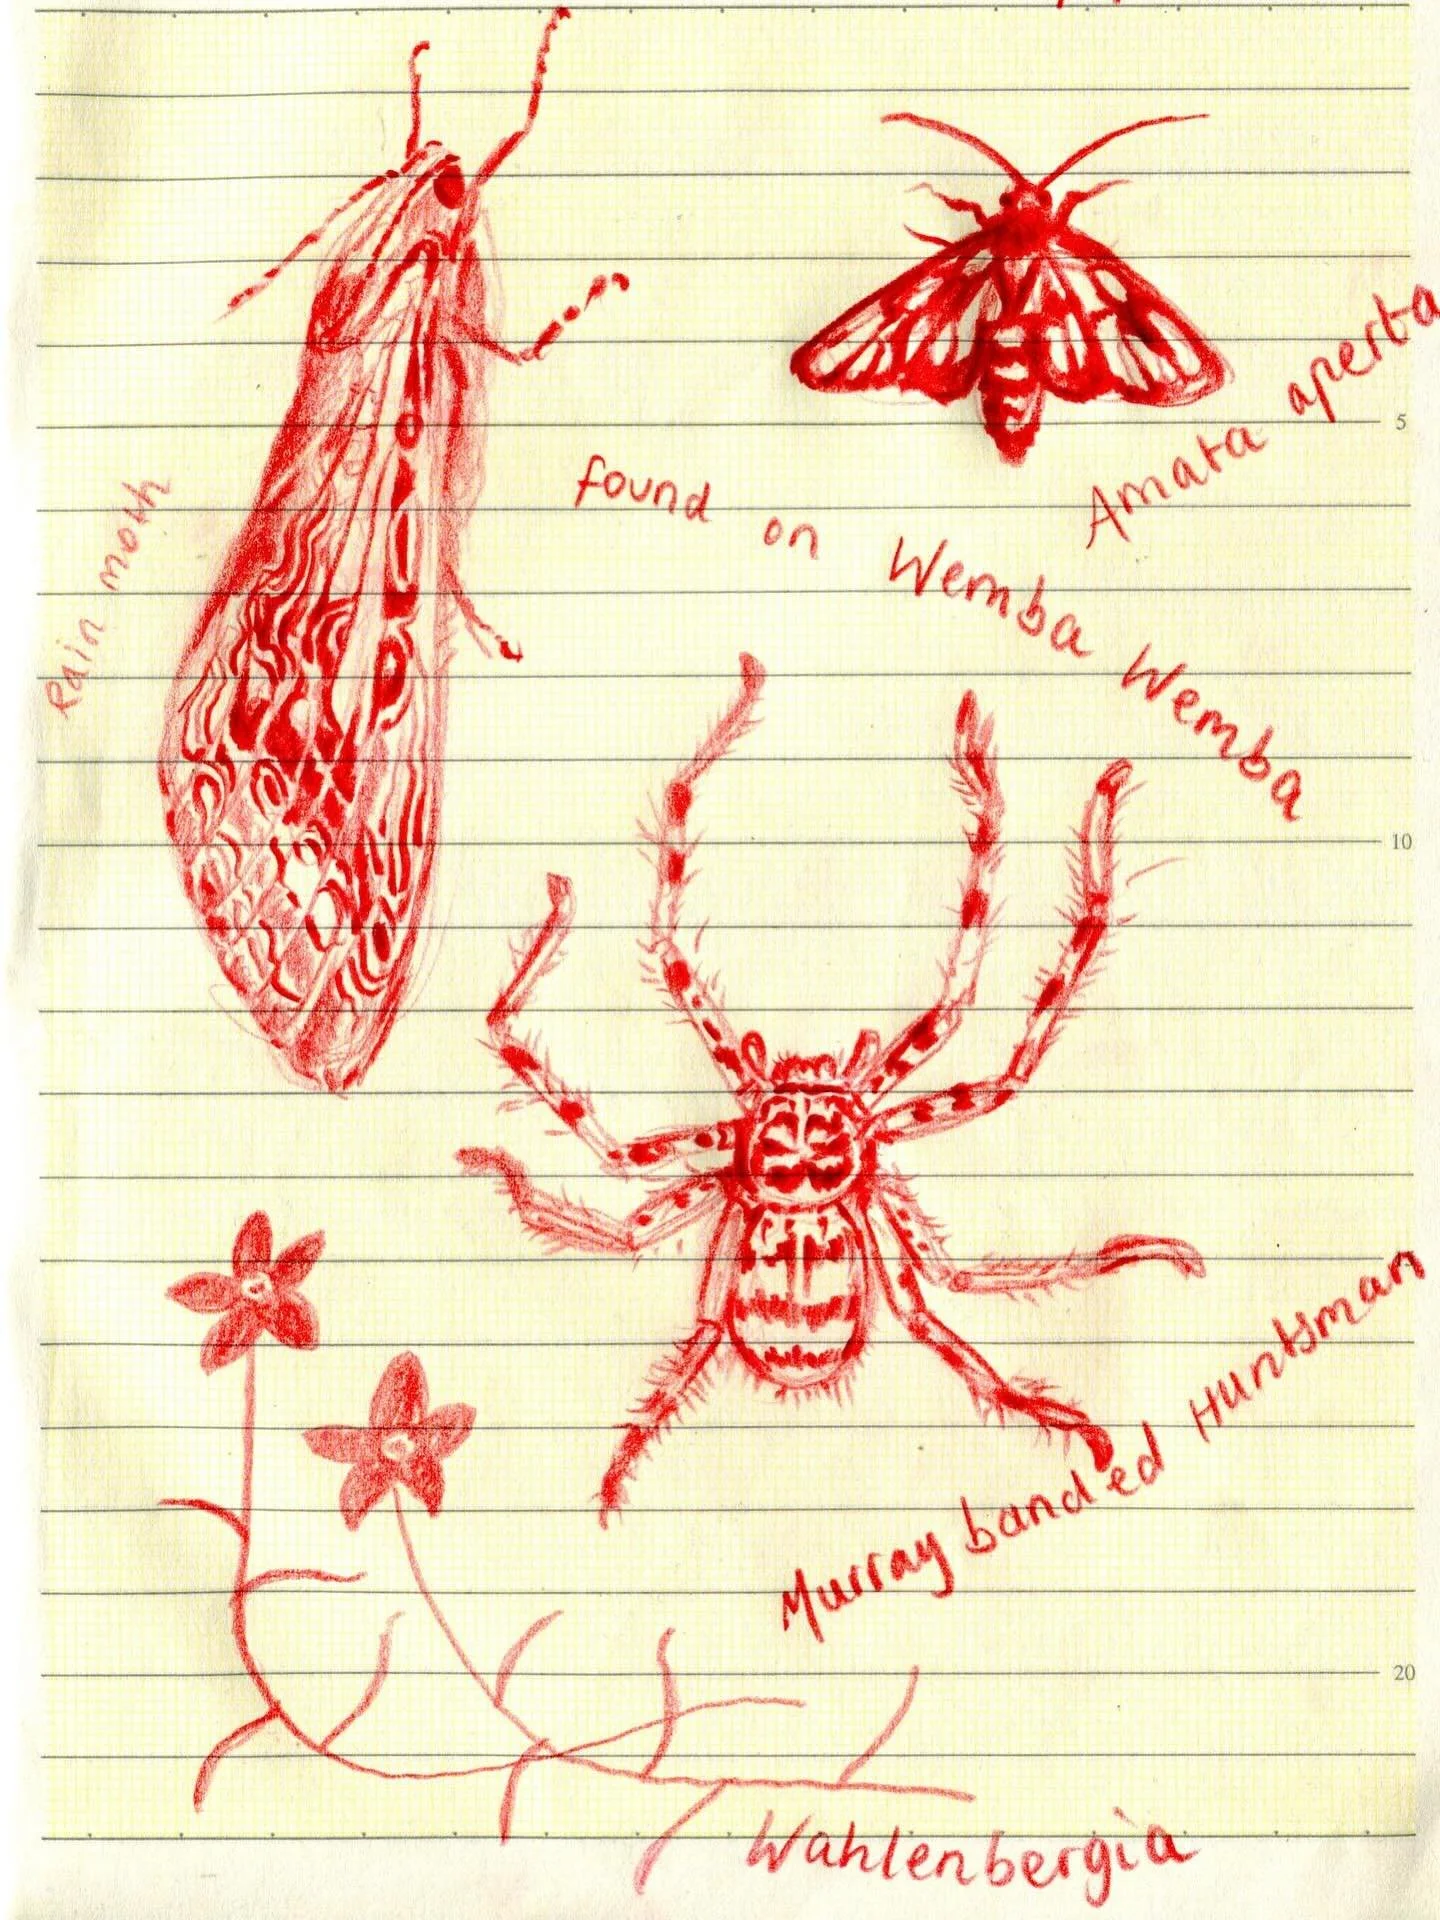 Rain moth
Amata aperta
found on Wemba Wemba
5
10
Murray banded Huntsman
20
Wahlenbergia